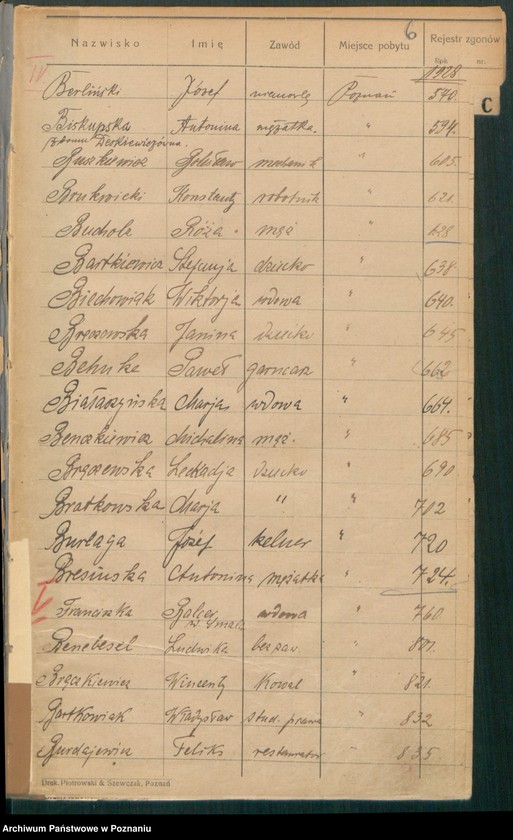 6
Nazwisko Imię Zawód Miejsce pobytu Rejestr zgonów
Rok nr.
IV 1928
Berliński Józef niemowlę Poznań 540.
Biskupska Antonina mężatka. " 594.
z domu
Ruszkiewicz 605.
Brukwicki Konstanty robotnik " 621.
Buchola Róża " 628
Bartkiewicz Stefanja dziecko " 638.
Biechowiak Wiktorja wdowa " 640.
Janina dziecko " 645
Behnke Paweł garncarz " 662
Białaszyńska Marja wdowa " 664.
Benczkiewicz Michalina męż. " 685
Leokadja dziecko " 690
Bratkowska Marja " " 702
Burlaga Józef kelner " 720
Bresińska Antonina mężatka " 724.
V Franciszka Balcer wdowa " 760
Benebesel Ludwika bez zaw. " 801.
Brączkiewicz Wincenty Kowal " 821.
Bartkowiak Władysław stud. prawa " 832
Feliks restaurator " 835.
C
Druk. Piotrowski & Szewczak, Poznań
Archiwum Państwowe w Poznaniu